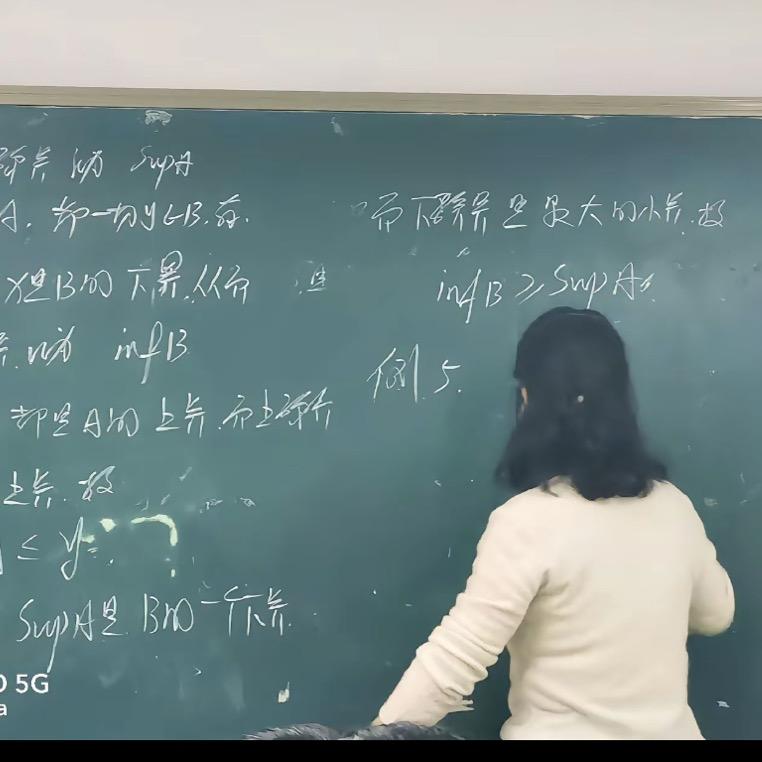 确界,记为 SupA
A, 都一切y∈B,有
x是B的下界,从而
界,记为 infB
都是A的上界,而上确界
上界,故
≤ y
SupA是B的一下界
而下确界是最大的下界,故
infB ≥ SupA.
例5.
5G
a